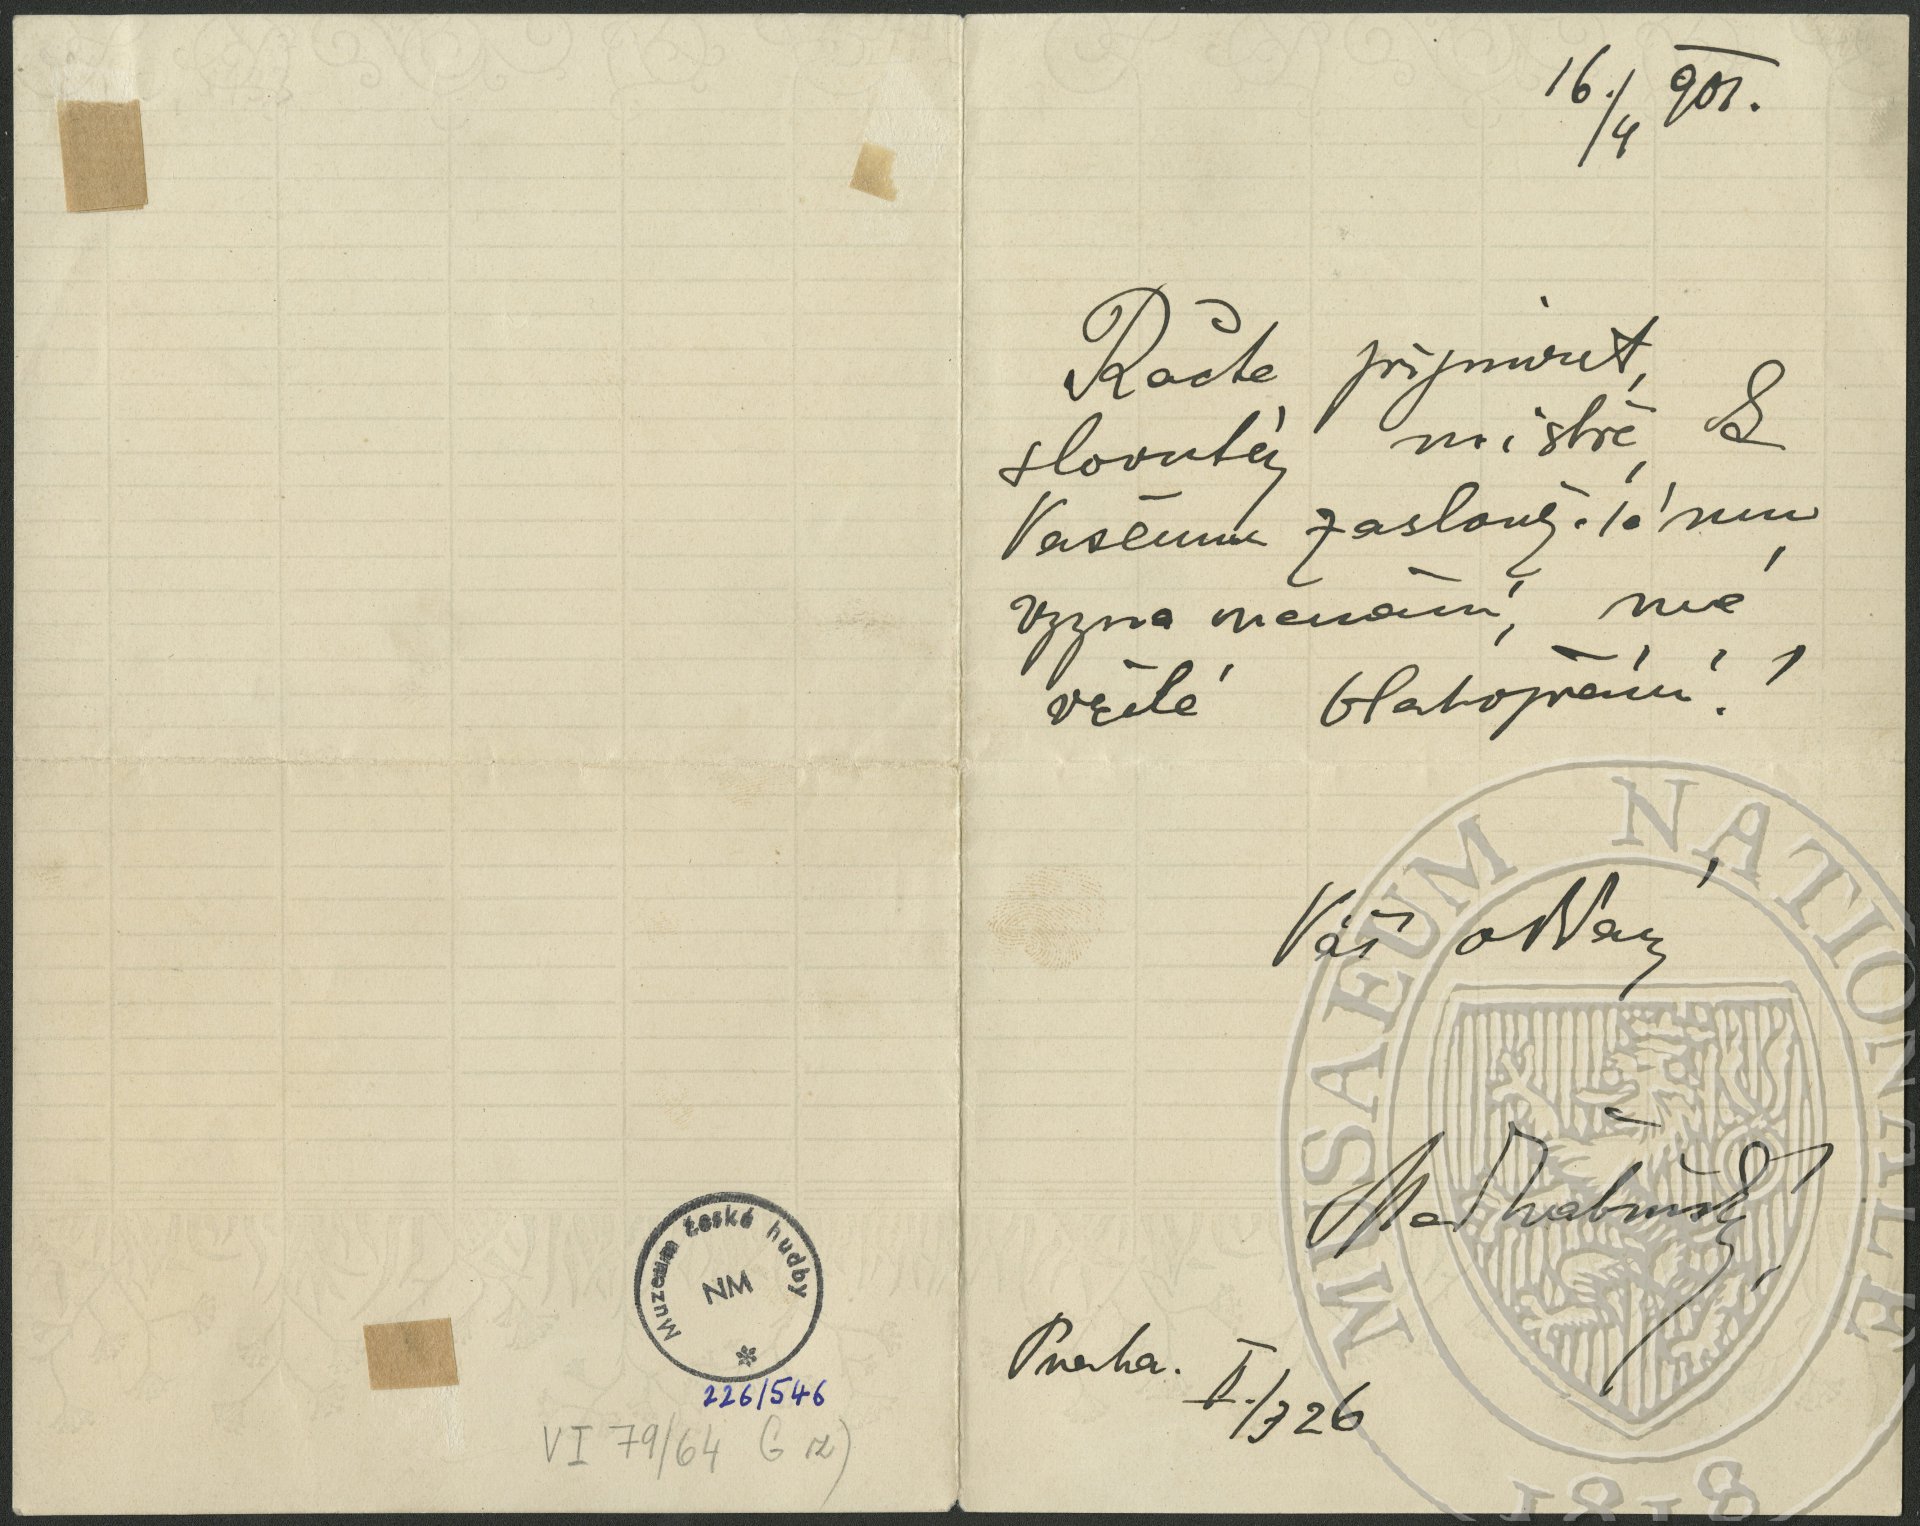 16./4 901.
Račte přijmouti,
slovutný mistře, k
Vašemu zaslouženému
vyznamenání, mé
vřelé blahopřání!
Váš oddaný
Max Švabinský
Praha. II./326
Muzeum české hudby
NM
226/546
VI 79/64 G
MUSAEUM NATIONALE
1818